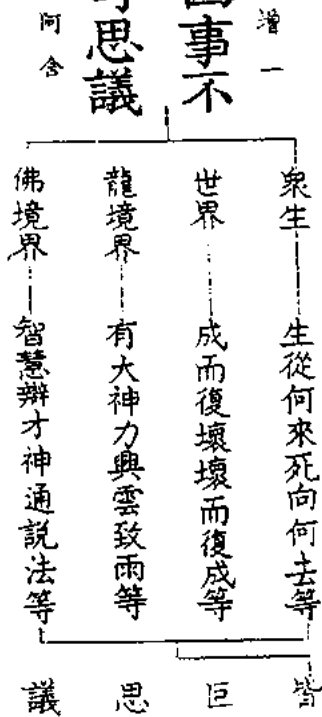 增一
事不
思議
阿含
眾生 生從何來死向何去等
世界 成而復壞壞而復成等
龍境界 有大神力興雲致雨等
佛境界 智慧辯才神通說法等
皆
叵
思
議